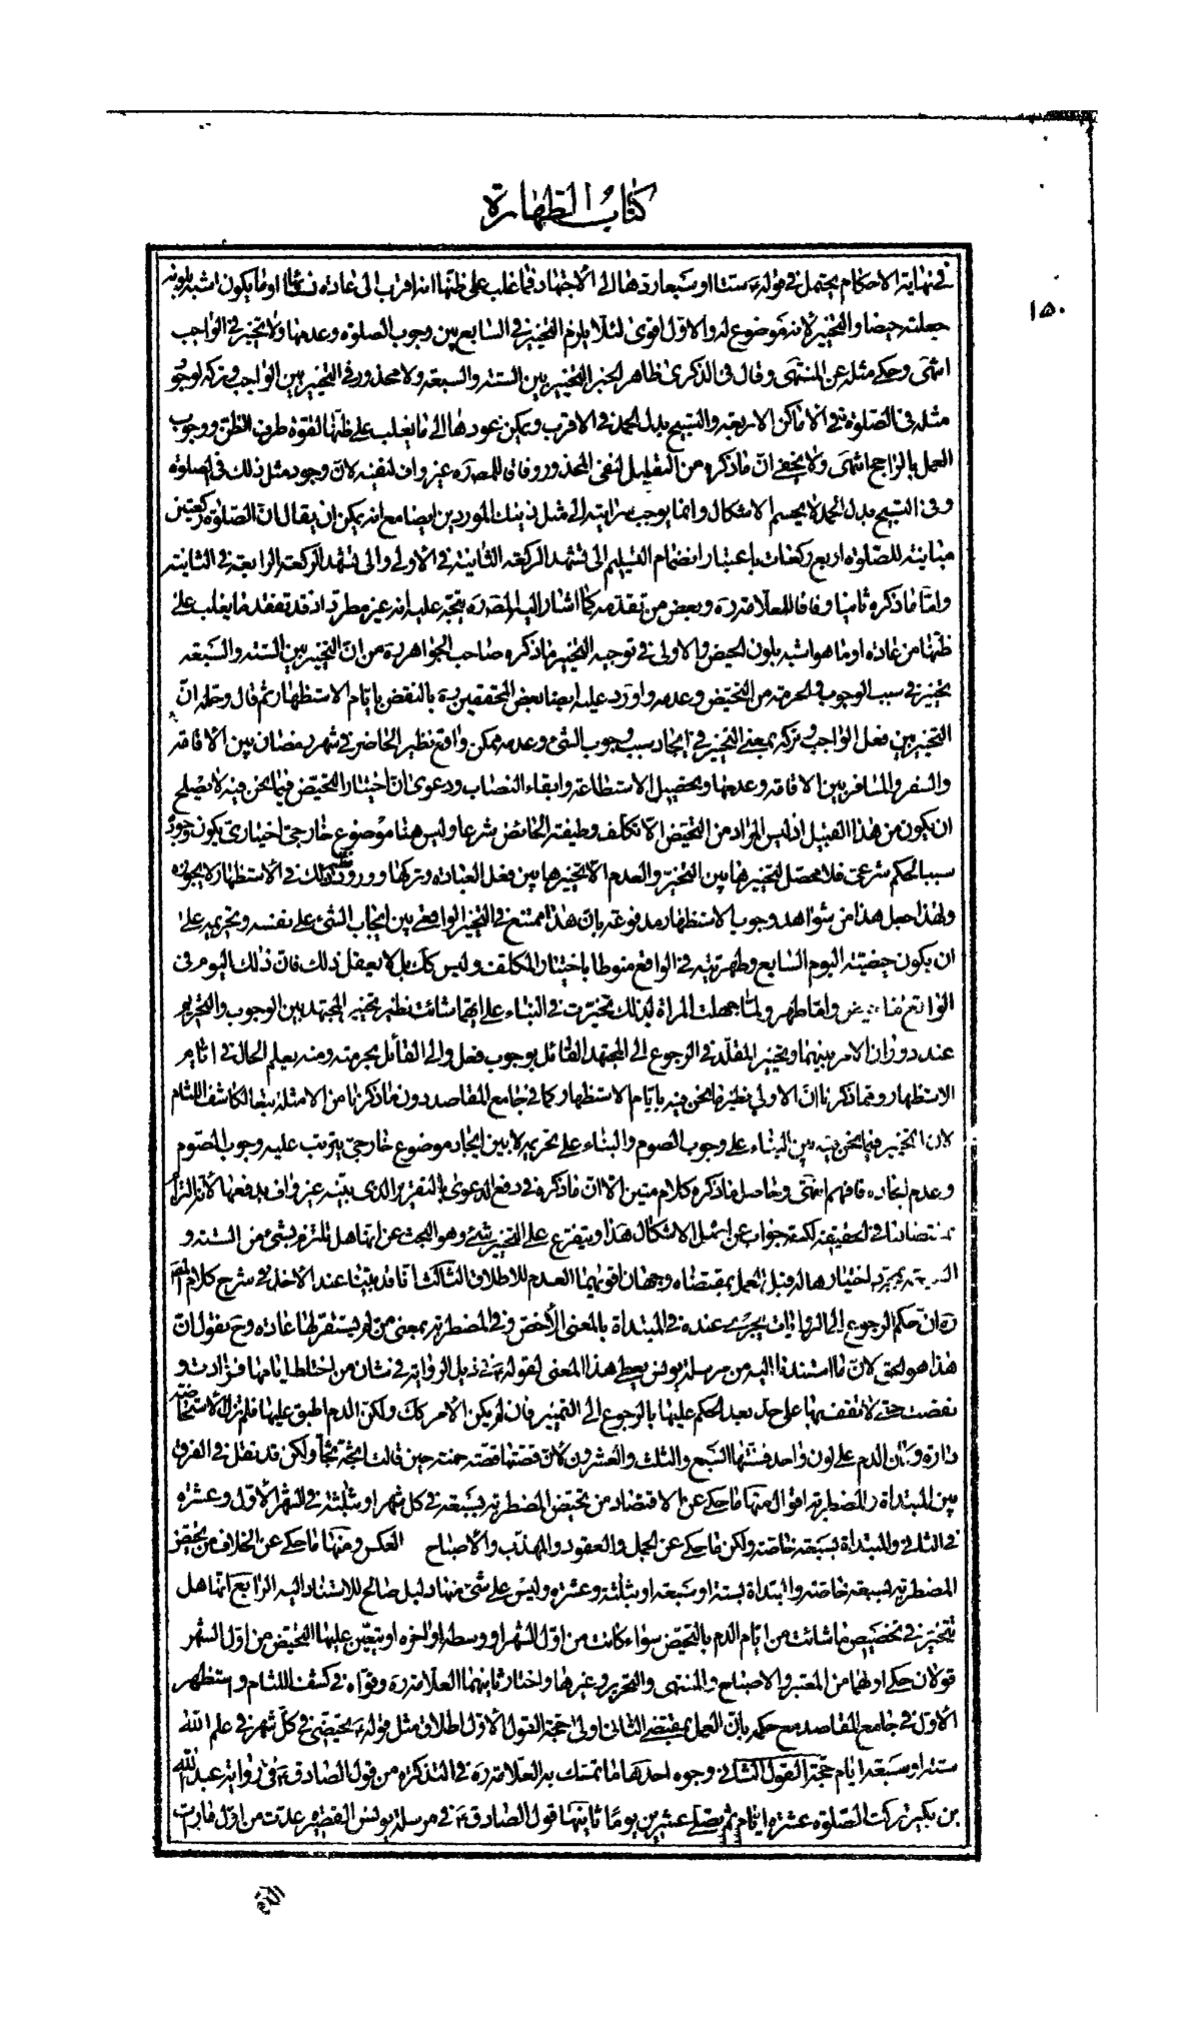 كتاب الطهارة
١٥٠
في نهاية الاحكام يحتمل في قوله ستا او سبعا ردها الى الاجتهاد فما غلب على ظنها انه اقرب الى عادة نسائها او ما يكون اشبه بلونه
جعلته حيضا والتخيير لانه موضوع له والاول اقوى لئلا يلزم التخيير في السابع بين وجوب الصلوة وعدمها ولا تخيير في الواجب
انتهى وحكى مثله عن المنتهى وقال في الذكرى ظاهر الخبر التخيير بين الستة والسبعة ولا محذور في التخيير بين الواجب وتركه لوجود
مثله في الصلوة في الاماكن الاربعة والتسبيح بدل الحمد في الاقرب ويمكن عودها الى ما يغلب على ظنها لقوة طرف الظن ووجوب
العمل بالراجح انتهى ولا يخفى ان ما ذكره من التعليل لنفى المحذور وفاقا للمص ره غير واف لنفيه لان وجود مثل ذلك في الصلوة
وفى التسبيح بدل الحمد لا يحسم الاشكال وانما يوجب سرايته الى مثل ذينك الموردين ايضا مع انه يمكن ان يقال ان الصلوة ركعتين
مباينة للصلوة اربع ركعات باعتبار انضمام التسليم الى تشهد الركعة الثانية في الاولى والى تشهد الركعة الرابعة في الثانية
واما ما ذكره ثانيا وفاقا للعلامة ره وبعض من تقدمه كما اشار اليه المص ره يتجه عليه انه غير مطرد اذ قد تفقد ما يغلب على
ظنها من عادة او ما هو اشبه بلون الحيض والاولى في توجيه التخيير ما ذكره صاحب الجواهر ره من ان التخيير بين الستة والسبعة
تخيير في سبب الوجوب والحرمة من التحيض وعدمه واورد عليه ايضا بعض المحققين ره بالنقض بايام الاستظهار ثم قال وحله ان
التخيير بين فعل الواجب وتركه بمعنى التخيير في ايجاد سبب وجوب الشئ وعدمه ممكن واقع نظير الحاضر في شهر رمضان بين الاقامة
والسفر والمسافر بين الاقامة وعدمها وتحصيل الاستطاعة وابقاء النصاب ودعوى ان اختيار التحيض فيما نحن فيه لا يصلح
ان يكون من هذا القبيل اذ ليس المراد من التحيض الا تكلف وظيفة الحائض شرعا وليس هنا موضوع خارجى اختيارى يكون وجوده
سببا لحكم شرعى فلا محصل لتخييرها بين التحيض والعدم الا تخييرها بين فعل العبادة وتركها وورود نظير ذلك في الاستظهار لا يجوزه
ولهذا جعل هذا من شواهد وجوب الاستظهار مدفوعة بان هذا ممتنع في التخيير الواقعى بين ايجاب الشئ على نفسه وتحريمه على
ان يكون حيضية اليوم السابع وطهريته في الواقع منوطا باختيار المكلف وليس كك بل لا يعقل ذلك فان ذلك اليوم في
الواقع اما حيض واما طهر ولما جهلت المراة لذلك تخيرت في البناء على ايهما شائت نظير تخيير المجتهد بين الوجوب والتحريم
عند دوران الامر بينهما وتخيير المقلد في الرجوع الى المجتهد القائل بوجوب فعل والى القائل بحرمته ومنه يعلم الحال في ايام
الاستظهار ومما ذكرنا ان الاولى تنظير ما نحن فيه بايام الاستظهار كما في جامع المقاصد دون ما ذكرنا من الامثلة تبعا لكاشف اللثام
لان التخيير فيما نحن فيه بين البناء على وجوب الصوم والبناء على تحريمه لا بين ايجاد موضوع خارجى يترتب عليه وجوب الصوم
وعدم ايجاده فافهم انتهى وحاصل ما ذكره كلام متين الا ان ما ذكره في دفع الدعوى بالتقرير الذى بينه غير واف بدفعها لانه التزام
في الحقيقة لكنه جواب عن اصل الاشكال هذا ويتفرع على التخيير شئ وهو البحث عن انها هل تلتزم بشئ من الستة و
السبعة بمجرد اختيارها له قبل العمل بمقتضاه وجهان اقويهما العدم للاطلاق الثالث انا قد بينا عند الاخذ في شرح كلام المص
ره ان حكم الرجوع الى الروايات يجرى عنده في المبتداة بالمعنى الاخص وفى المضطربة بمعنى من لم يستقر لها عادة وح نقول ان
هذا هو الحق لان ما استندنا اليه من مرسلة يونس يعطى هذا المعنى لقوله ع في ذيل الرواية في شان من اختلط ايامها فزادت و
نقصت حتى لا تقف منها على حد بعد الحكم عليها بالرجوع الى التمييز فان لم يكن الامر كك ولكن الدم اطبق عليها فلم تزل الاستحاضة
دارة وكان الدم على لون واحد فسنتها السبع والثلث والعشرون لان قصتها قصة حمنة حين قالت اثجه ثجا ولكن قد نقل في الفرق
بين المبتداة والمضطربة اقوال منها ما حكى عن الاقتصاد من تحيض المضطربة بسبعة في كل شهر او بثلثة في الشهر الاول وعشرة
في الثانى والمبتداة بسبعة خاصة ولكن ما حكى عن الجمل والعقود والمهذب والاصباح العكس ومنها ما حكى عن الخلاف من تحيض
المضطربة بسبعة خاصة والمبتداة بستة او سبعة او بثلثة وعشرة وليس على شئ منها دليل صالح للاستناد اليه الرابع انها هل
تتخير في تخصيص ما شائت من ايام الدم بالتحيض سواء كانت من اول الشهر او وسطه او اخره او يتعين عليها التحيض من اول الشهر
قولان حكى اولهما من المعتبر والاصباح والمنتهى والتحرير وغيرها واختار ثانيهما العلامة ره وقواه في كشف اللثام واستظهر
الاول في جامع المقاصد مع حكمه بان العمل بمقتضى الثانى اولى حجة القول الاول اطلاق مثل قوله ع تحيضى في كل شهر في علم الله
ستة او سبعة ايام حجة القول الثانى وجوه احدها ما تمسك به العلامة ره في التذكرة من قول الصادق ع في رواية عبد الله
بن بكير تركت الصلوة عشرة ايام ثم تصلى عشرين يوما ثانيها قول الصادق ع في مرسلة يونس القصيرة عدت من اول ما رات
الدم